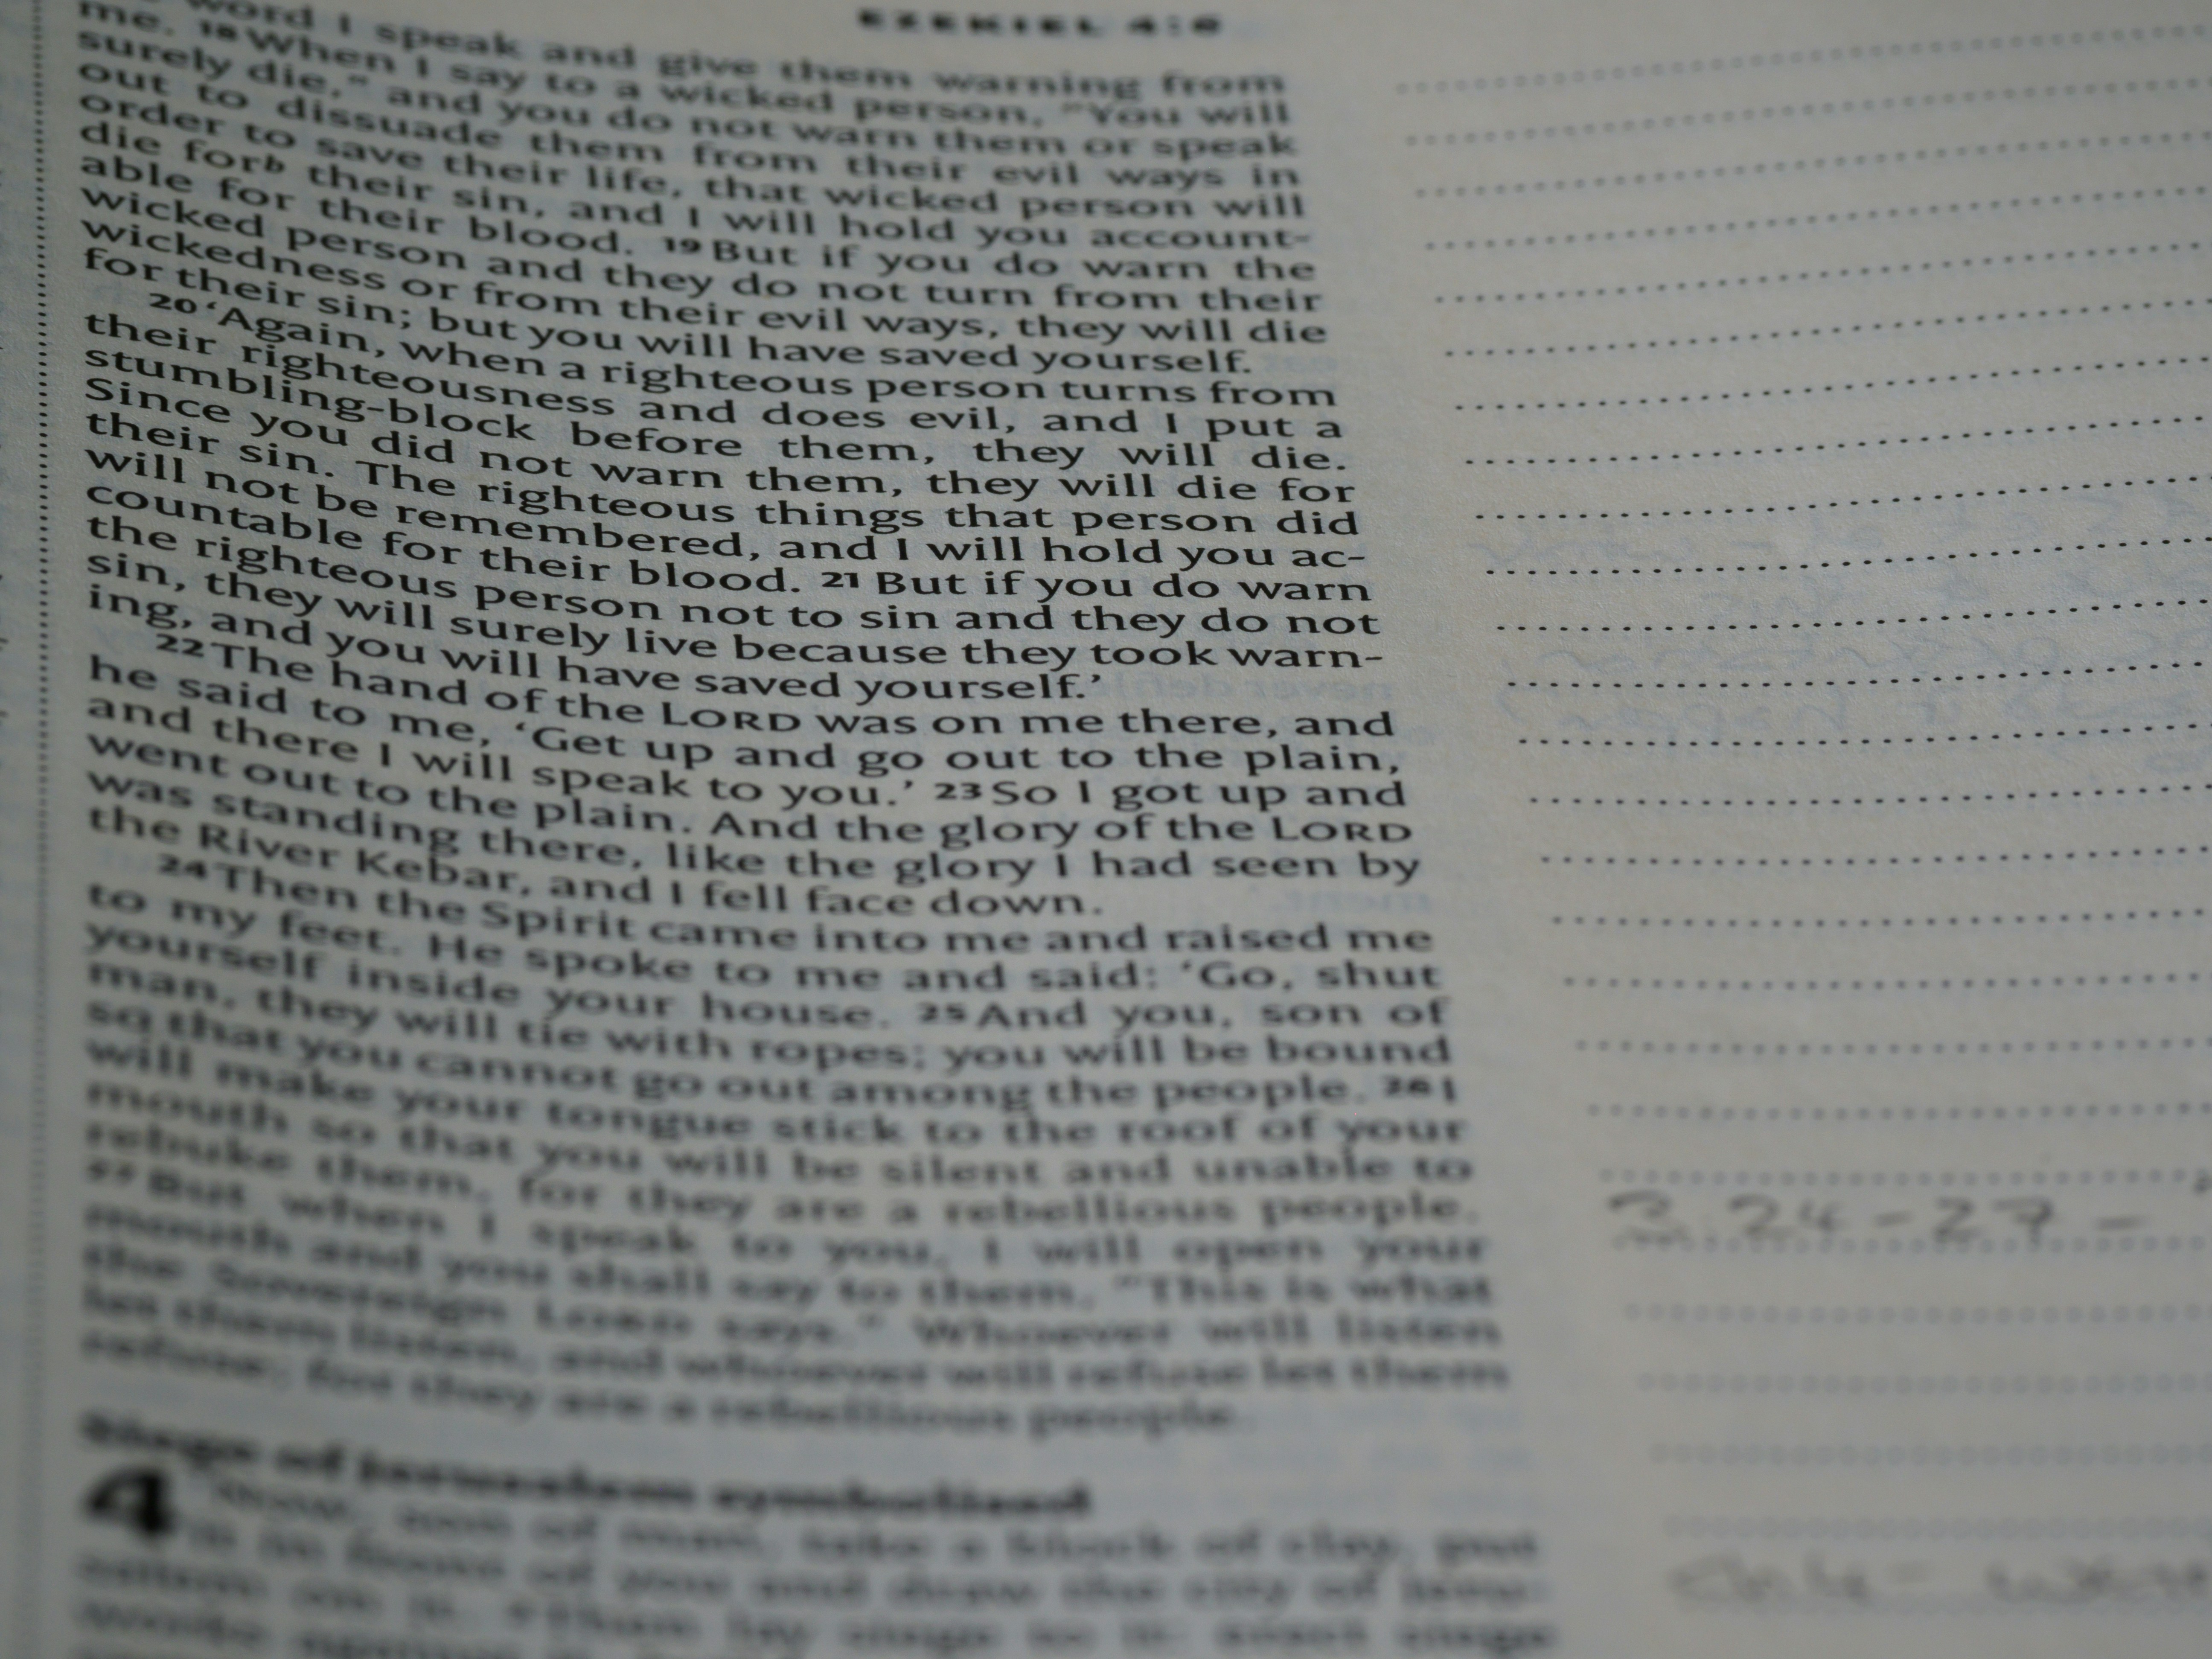 EZEKIEL 4:6
word I speak and give them warning from
me. 18 When I say to a wicked person, "You will
surely die," and you do not warn them or speak
out to dissuade them from their evil ways in
order to save their life, that wicked person will
die forb their sin, and I will hold you account-
able for their blood. 19 But if you do warn the
wicked person and they do not turn from their
wickedness or from their evil ways, they will die
for their sin; but you will have saved yourself.
20 ‘Again, when a righteous person turns from
their righteousness and does evil, and I put a
stumbling-block before them, they will die.
Since you did not warn them, they will die for
their sin. The righteous things that person did
will not be remembered, and I will hold you ac-
countable for their blood. 21 But if you do warn
the righteous person not to sin and they do not
sin, they will surely live because they took warn-
ing, and you will have saved yourself.’
22 The hand of the LORD was on me there, and
he said to me, ‘Get up and go out to the plain,
and there I will speak to you.’ 23 So I got up and
went out to the plain. And the glory of the LORD
was standing there, like the glory I had seen by
the River Kebar, and I fell face down.
24 Then the Spirit came into me and raised me
to my feet. He spoke to me and said: ‘Go, shut
yourself inside your house. 25 And you, son of
man, they will tie with ropes; you will be bound
so that you cannot go out among the people. 26 I
will make your tongue stick to the roof of your
mouth so that you will be silent and unable to
rebuke them, for they are a rebellious people.
27 But when I speak to you, I will open your
mouth and you shall say to them, "This is what
the Sovereign LORD says." Whoever will listen
let them listen, and whoever will refuse let them
refuse; for they are a rebellious people.
Siege of Jerusalem symbolised
4 ‘Now, son of man, take a block of clay, put
it in front of you and draw the city of Jeru-
salem on it. 2 Then lay siege to it: erect siege
works against
3. 24 - 27 -